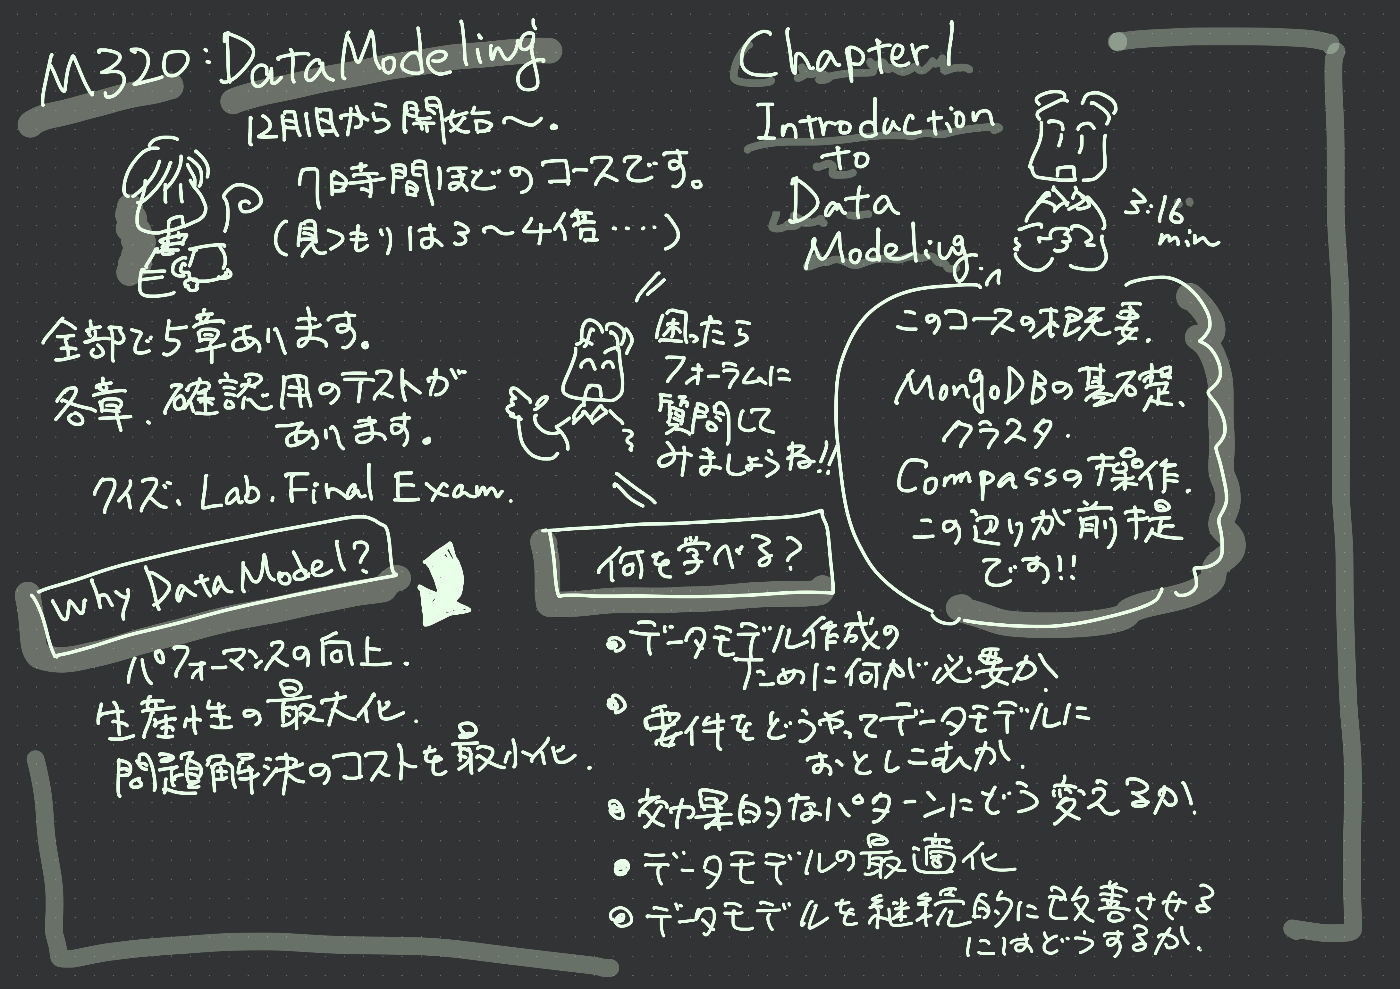 M320:Data Modeling
12月1日から開始〜.
7時間ほどのコースです。
(見つもりは3〜4倍‥‥)
全部で5章あります。
各章、確認用のテストが
あります。
クイズ、Lab、Final Exam.
困ったら
フォーラムに
質問して
みましょうね!!
Why Data Model?
パフォーマンスの向上.
生産性の最大化.
問題解決のコストを最小化.
Chapter 1
Introduction
to
Data
Modeling.
3:16
min
このコースの概要.
MongoDBの基礎、
クラスタ.
Compassの操作.
この辺りが前提
です!!
何を学べる?
• データモデル作成の
ために何が必要か、
• 要件をどうやってデータモデルに
おとしこむか.
• 効果的なパターンにどう変えるか!
• データモデルの最適化
• データモデルを継続的に改善させる
にはどうするか.